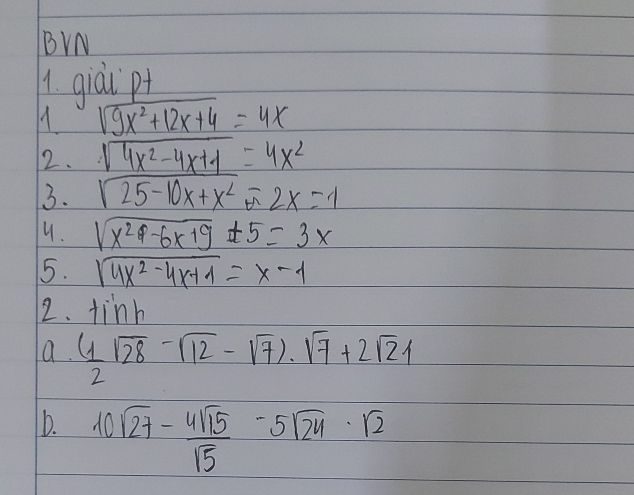 BVN
1. giải pt
1. √(9x²+12x+4) = 4x
2. √(4x²-4x+1) = 4x²
3. √(25-10x+x²) - 2x = 1
4. √(x²-6x+9) + 5 = 3x
5. √(4x²-4x+1) = x-1
2. tính
a. (1/2 √28 - √12 - √7) . √7 + 2√21
b. 10√27 - 4√15/√5 - 5√24 . √2